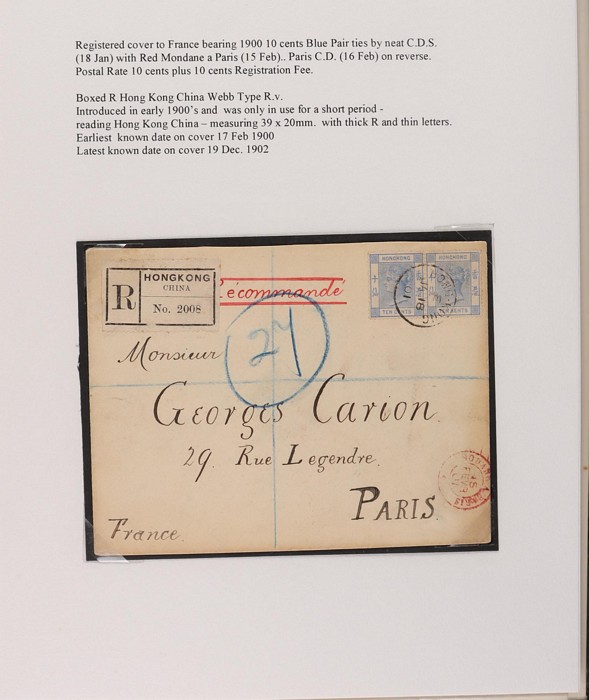 Registered cover to France bearing 1900 10 cents Blue Pair ties by neat C.D.S.
(18 Jan) with Red Mondane a Paris (15 Feb).. Paris C.D. (16 Feb) on reverse.
Postal Rate 10 cents plus 10 cents Registration Fee.
Boxed R Hong Kong China Webb Type R.v.
Introduced in early 1900's and was only in use for a short period -
reading Hong Kong China – measuring 39 x 20mm. with thick R and thin letters.
Earliest known date on cover 17 Feb 1900
Latest known date on cover 19 Dec. 1902
R
HONGKONG
CHINA
No. 2008
Recommandé
HONGKONG
HONGKONG
TEN CENTS
TEN CENTS
27
Monsieur
Georges Carion.
29. Rue Legendre.
PARIS.
France.
15